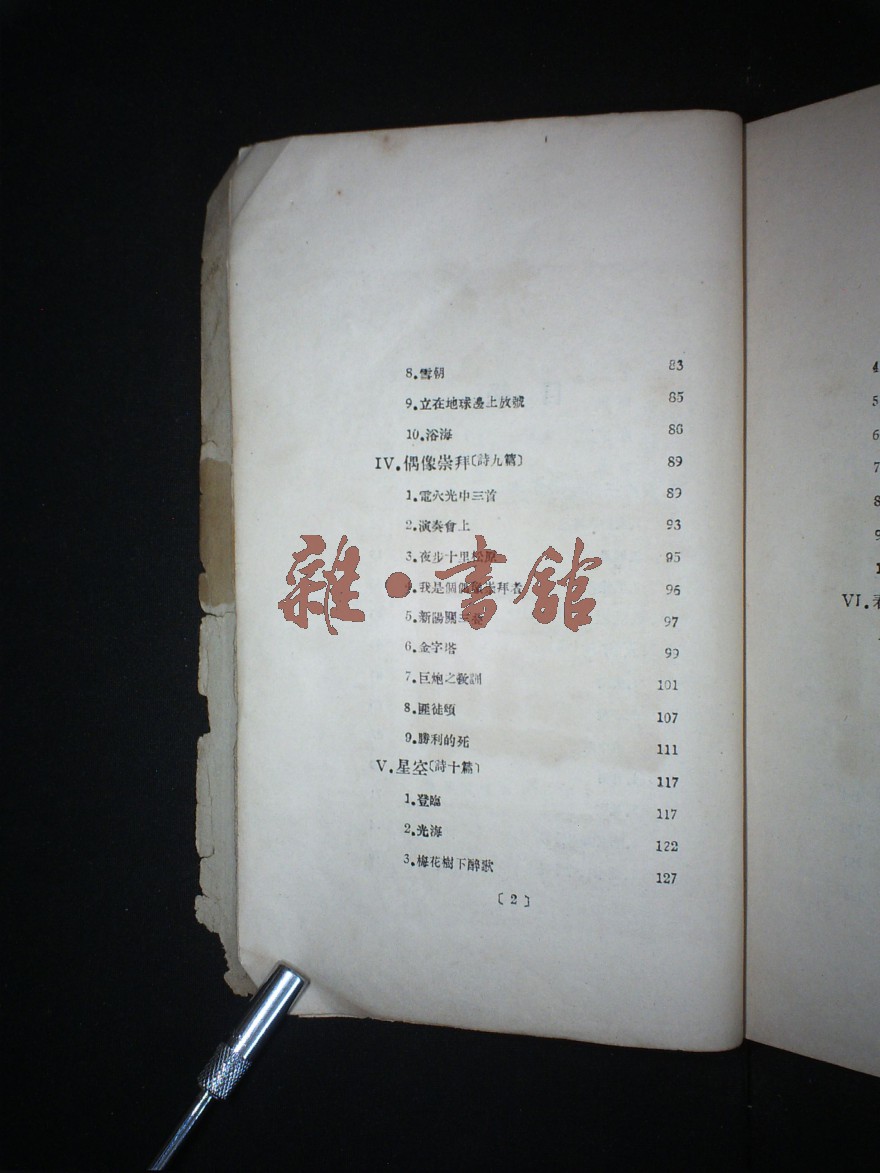 8.雪朝 83
9.立在地球邊上放號 85
10.浴海 86
IV.偶像崇拜〔詩九篇〕 89
1.電火光中三首 89
2.演奏會上 93
3.夜步十里松原 95
4.我是個偶像崇拜者 96
5.新陽關三疊 97
6.金字塔 99
7.巨炮之教訓 101
8.匪徒頌 107
9.勝利的死 111
V.星空〔詩十篇〕 117
1.登臨 117
2.光海 122
3.梅花樹下醉歌 127
〔2〕
雜·書館
4
5
6
7
8
9
1
VI.